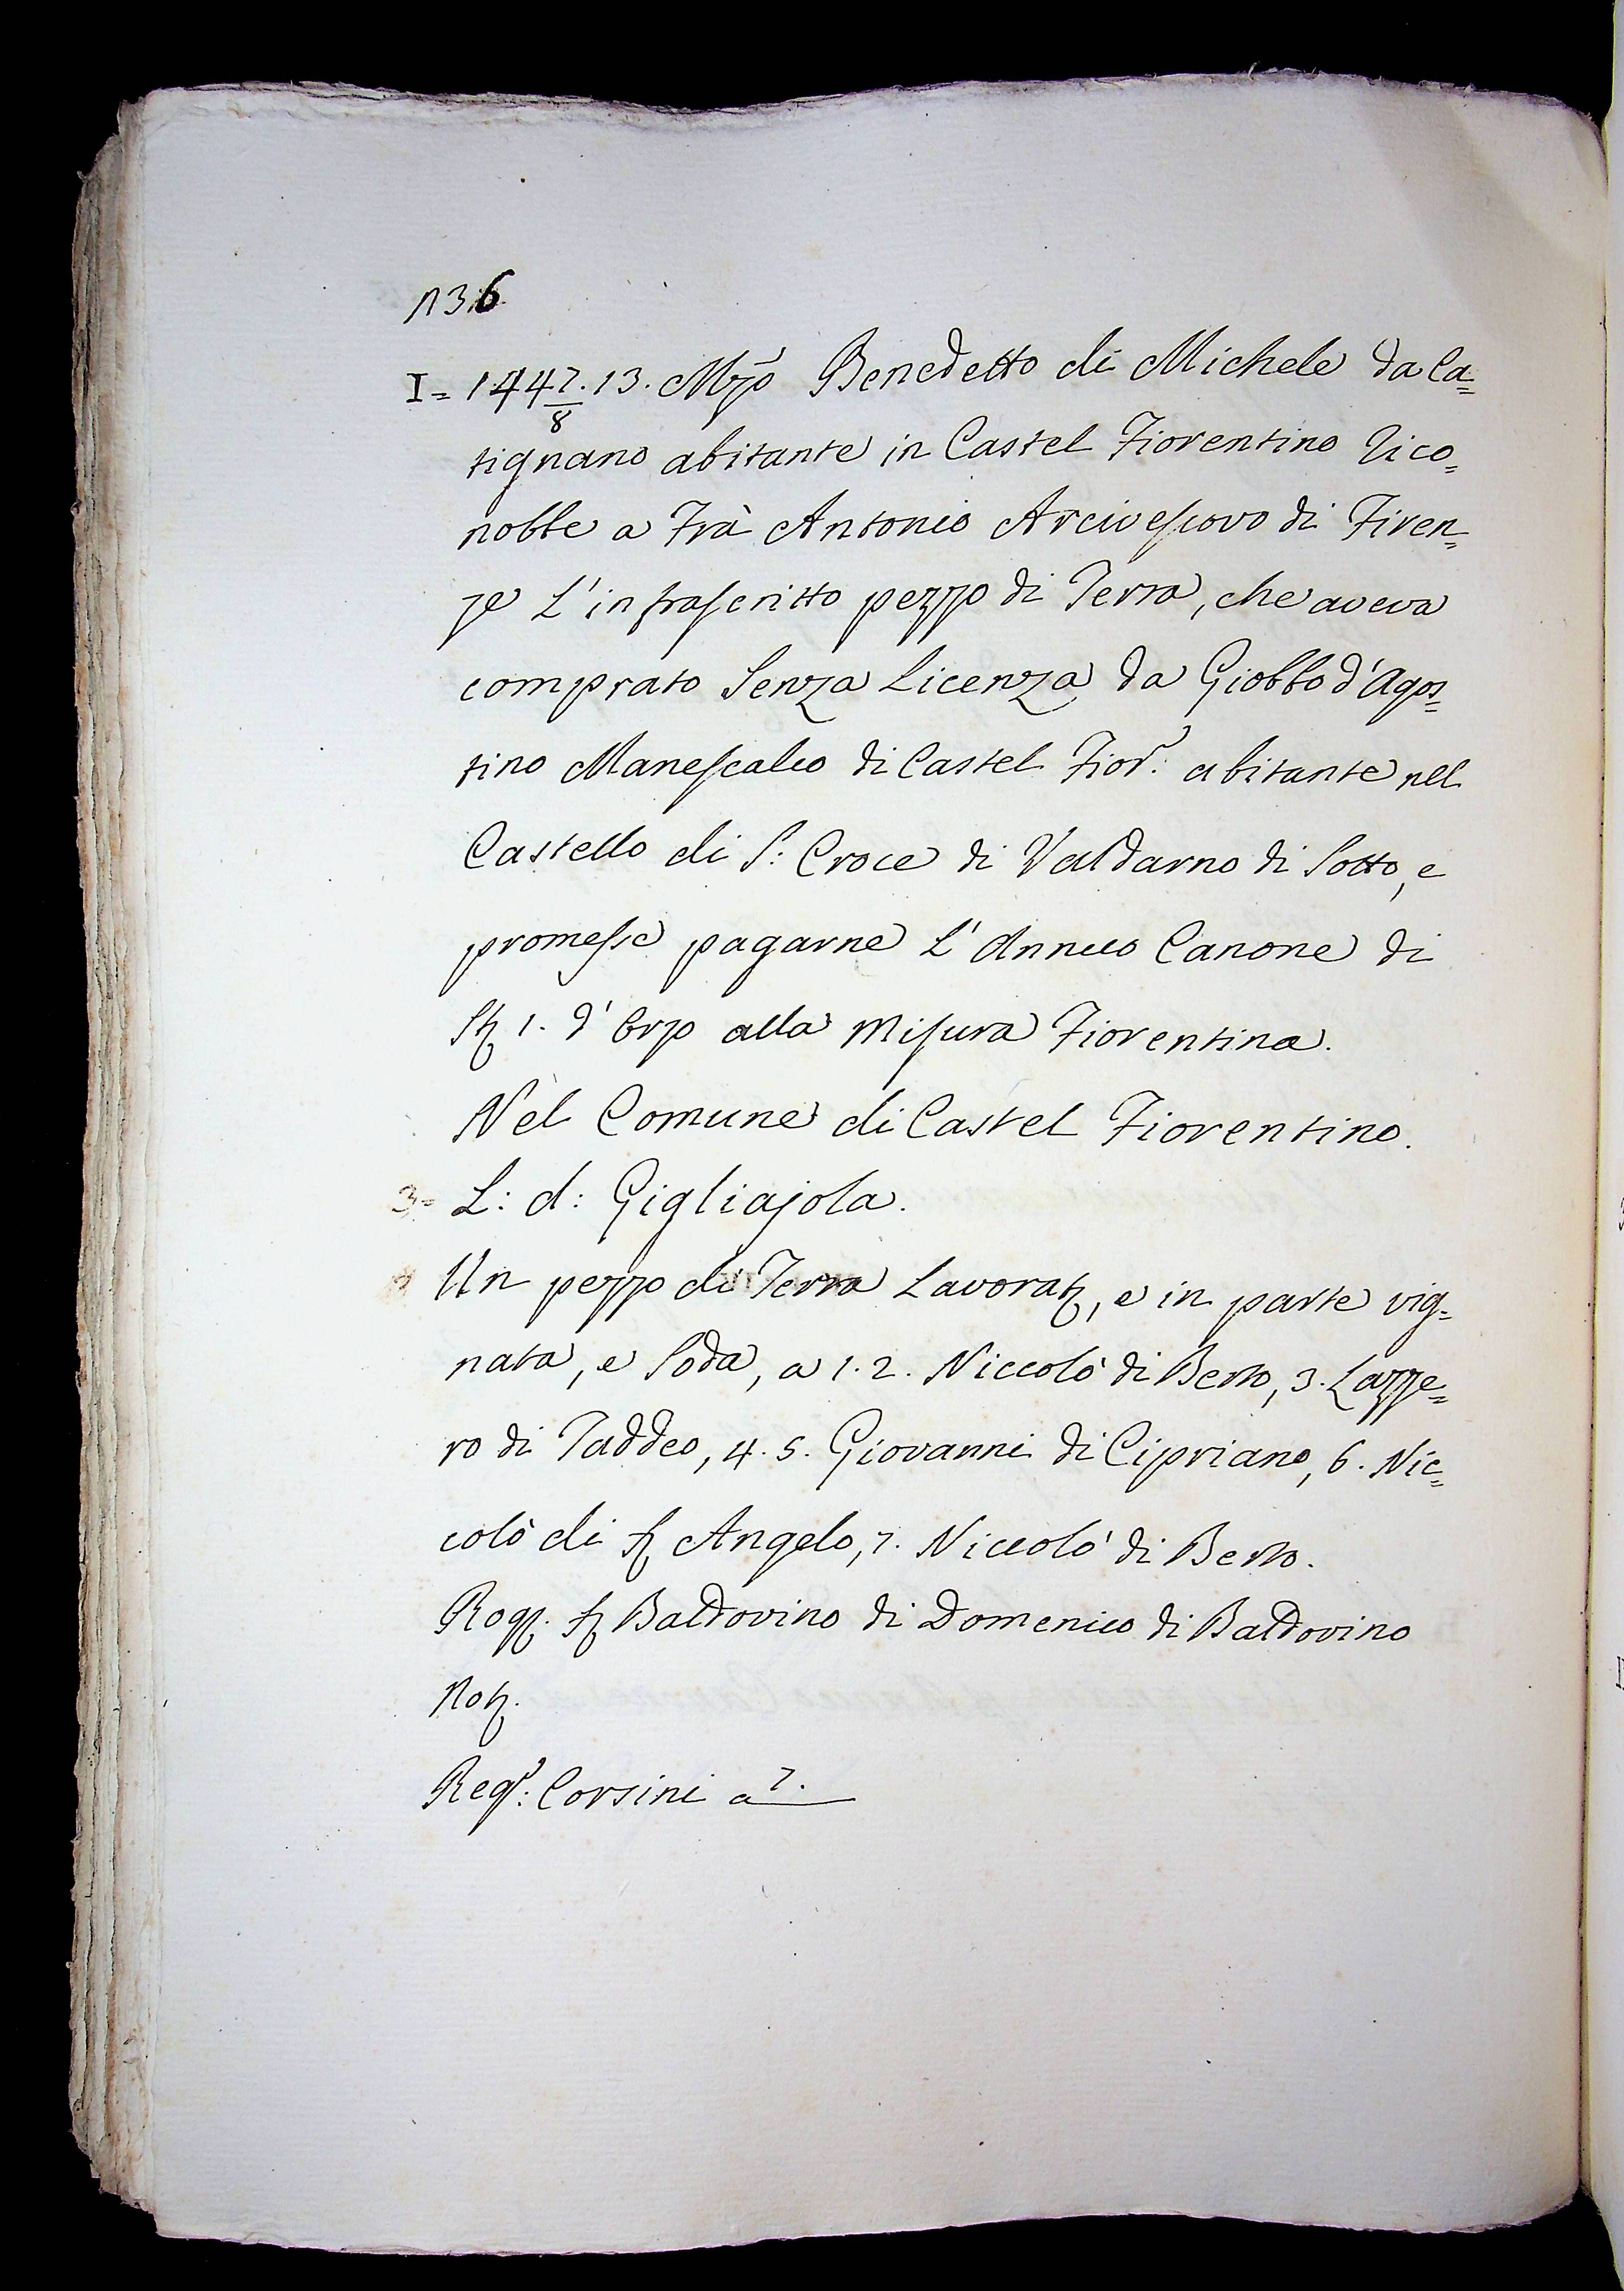 136.
I= 1447/8. 13. Mzo Benedetto di Michele da Ca=
tignano abitante in Castel Fiorentino Rico=
nobbe a Frà Antonio Arcivescovo di Firen=
ze L'infrascritto pezzo di Terra, che aveva
comprato Senza Licenza da Giobbo d'Agos=
tino Manescalco di Castel Fior: abitante nel
Castello di S: Croce di Valdarno di Sotto, e
promesse pagarne L'Annuo Canone di
1. d'Orzo alla Misura Fiorentina.
Nel Comune di Castel Fiorentino.
3= L: d: Gigliajola.
Un pezzo di Terra Lavorat, e in parte vig=
nata, e Soda, a 1. 2. Niccolò di Berto, 3. Lazze=
ro di Taddeo, 4. 5. Giovanni di Cipriano, 6. Nic=
colò di S Angelo, 7. Niccolò di Berto.
Rog. S Baldovino di Domenico di Baldovino
Not.
Reg: Corsini a 7.